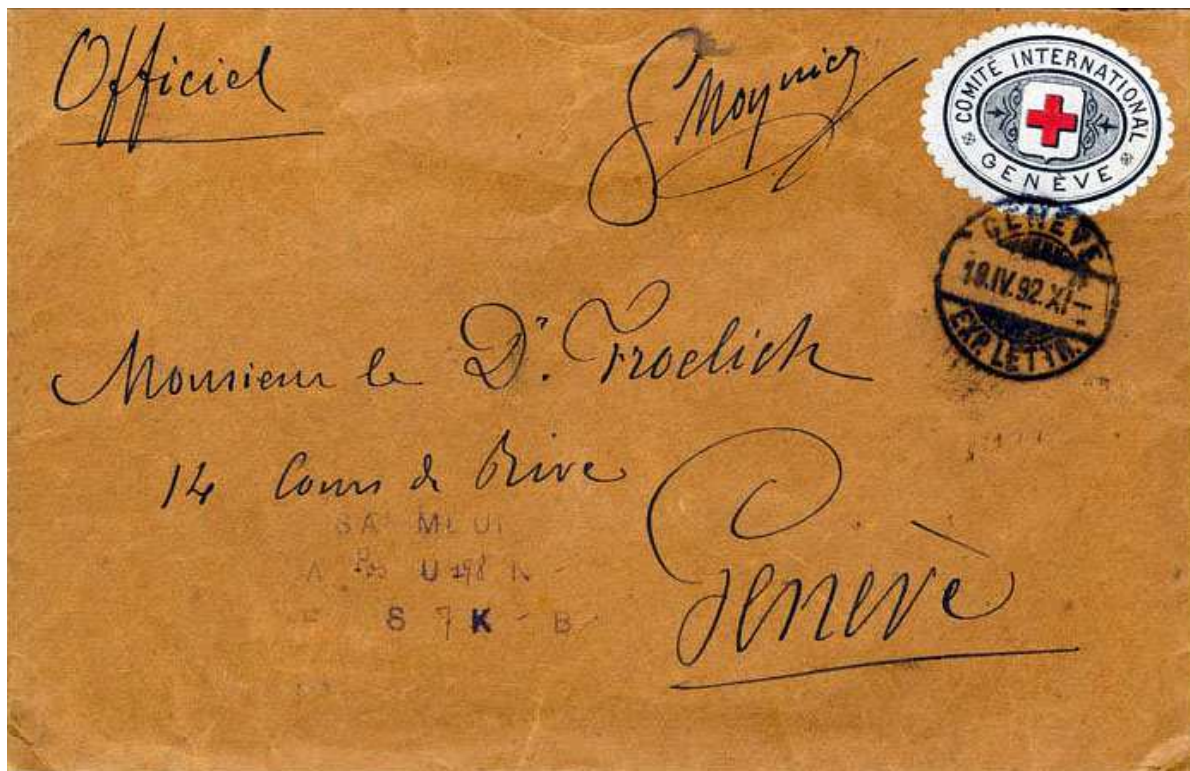 Officiel
G Moynier
COMITÉ INTERNATIONAL
GENÈVE
GENÈVE
18.IV.92.XI-
EXP. LETTR.
Monsieur le Dr. Froelich
14 Cours de Rive
Genève